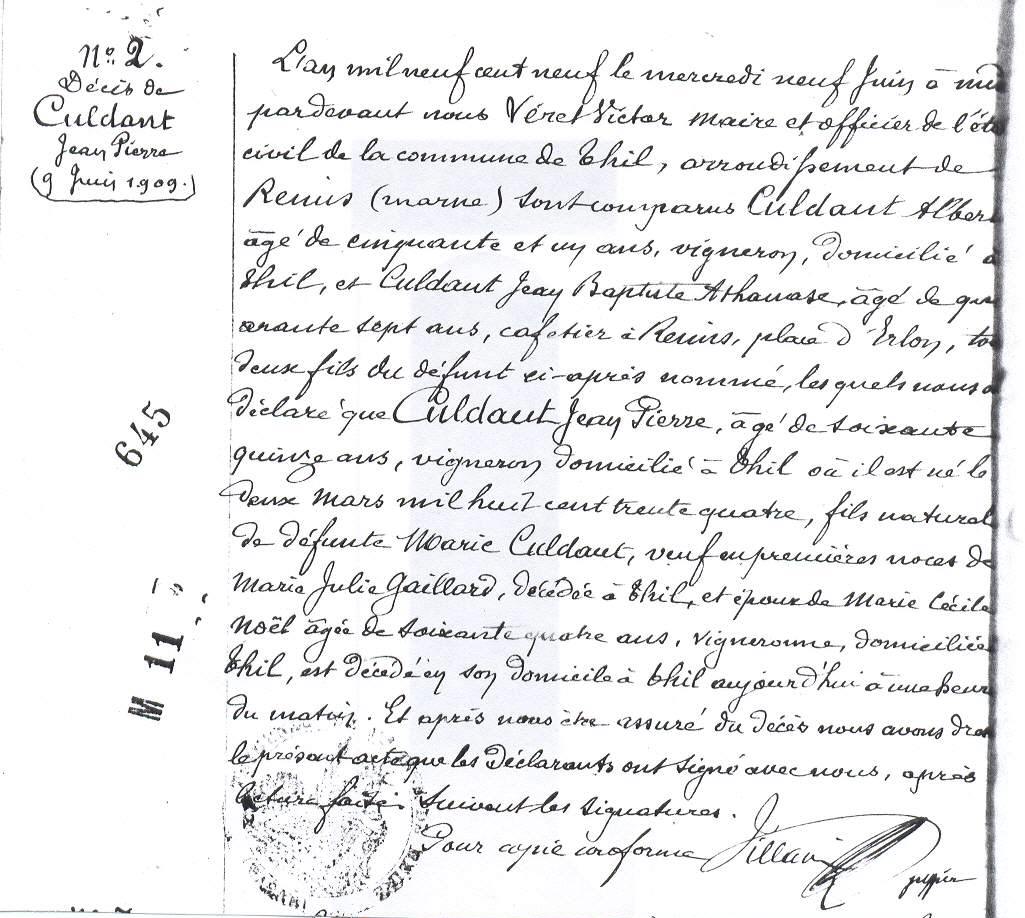 N° 2.
Décès de
Culdant
Jean Pierre
(9 Juin 1909.)
L'an mil neuf cent neuf le mercredi neuf Juin à mid
pardevant nous Véret Victor maire et officier de l'éta
civil de la commune de Thil, arrondissement de
Reims (marne) sont comparus Culdant Alber
âgé de cinquante et un ans, vigneron, domicilié à
Thil, et Culdant Jean Baptiste Athanase, âgé de qua
arante sept ans, cafetier à Reims, place d'Erlon, to
deux fils du défunt ci-après nommé, lesquels nous o
déclaré que Culdant Jean Pierre, âgé de soixante
quinze ans, vigneron domicilié à Thil où il est né le
deux mars mil huit cent trente quatre, fils naturel
de défunte Marie Culdant, veuf en premières noces de
Marie Julie Gaillard, décédée à Thil, et époux de Marie Cécile
Noël âgée de soixante quatre ans, vigneronne, domiciliée
Thil, est décédé en son domicile à Thil aujourd'hui à une heur
du matin. Et après nous être assuré du décès nous avons dres
le présent acte que les déclarants ont signé avec nous, après
lecture faite. Suivent les signatures.
Pour copie conforme
645
M 11